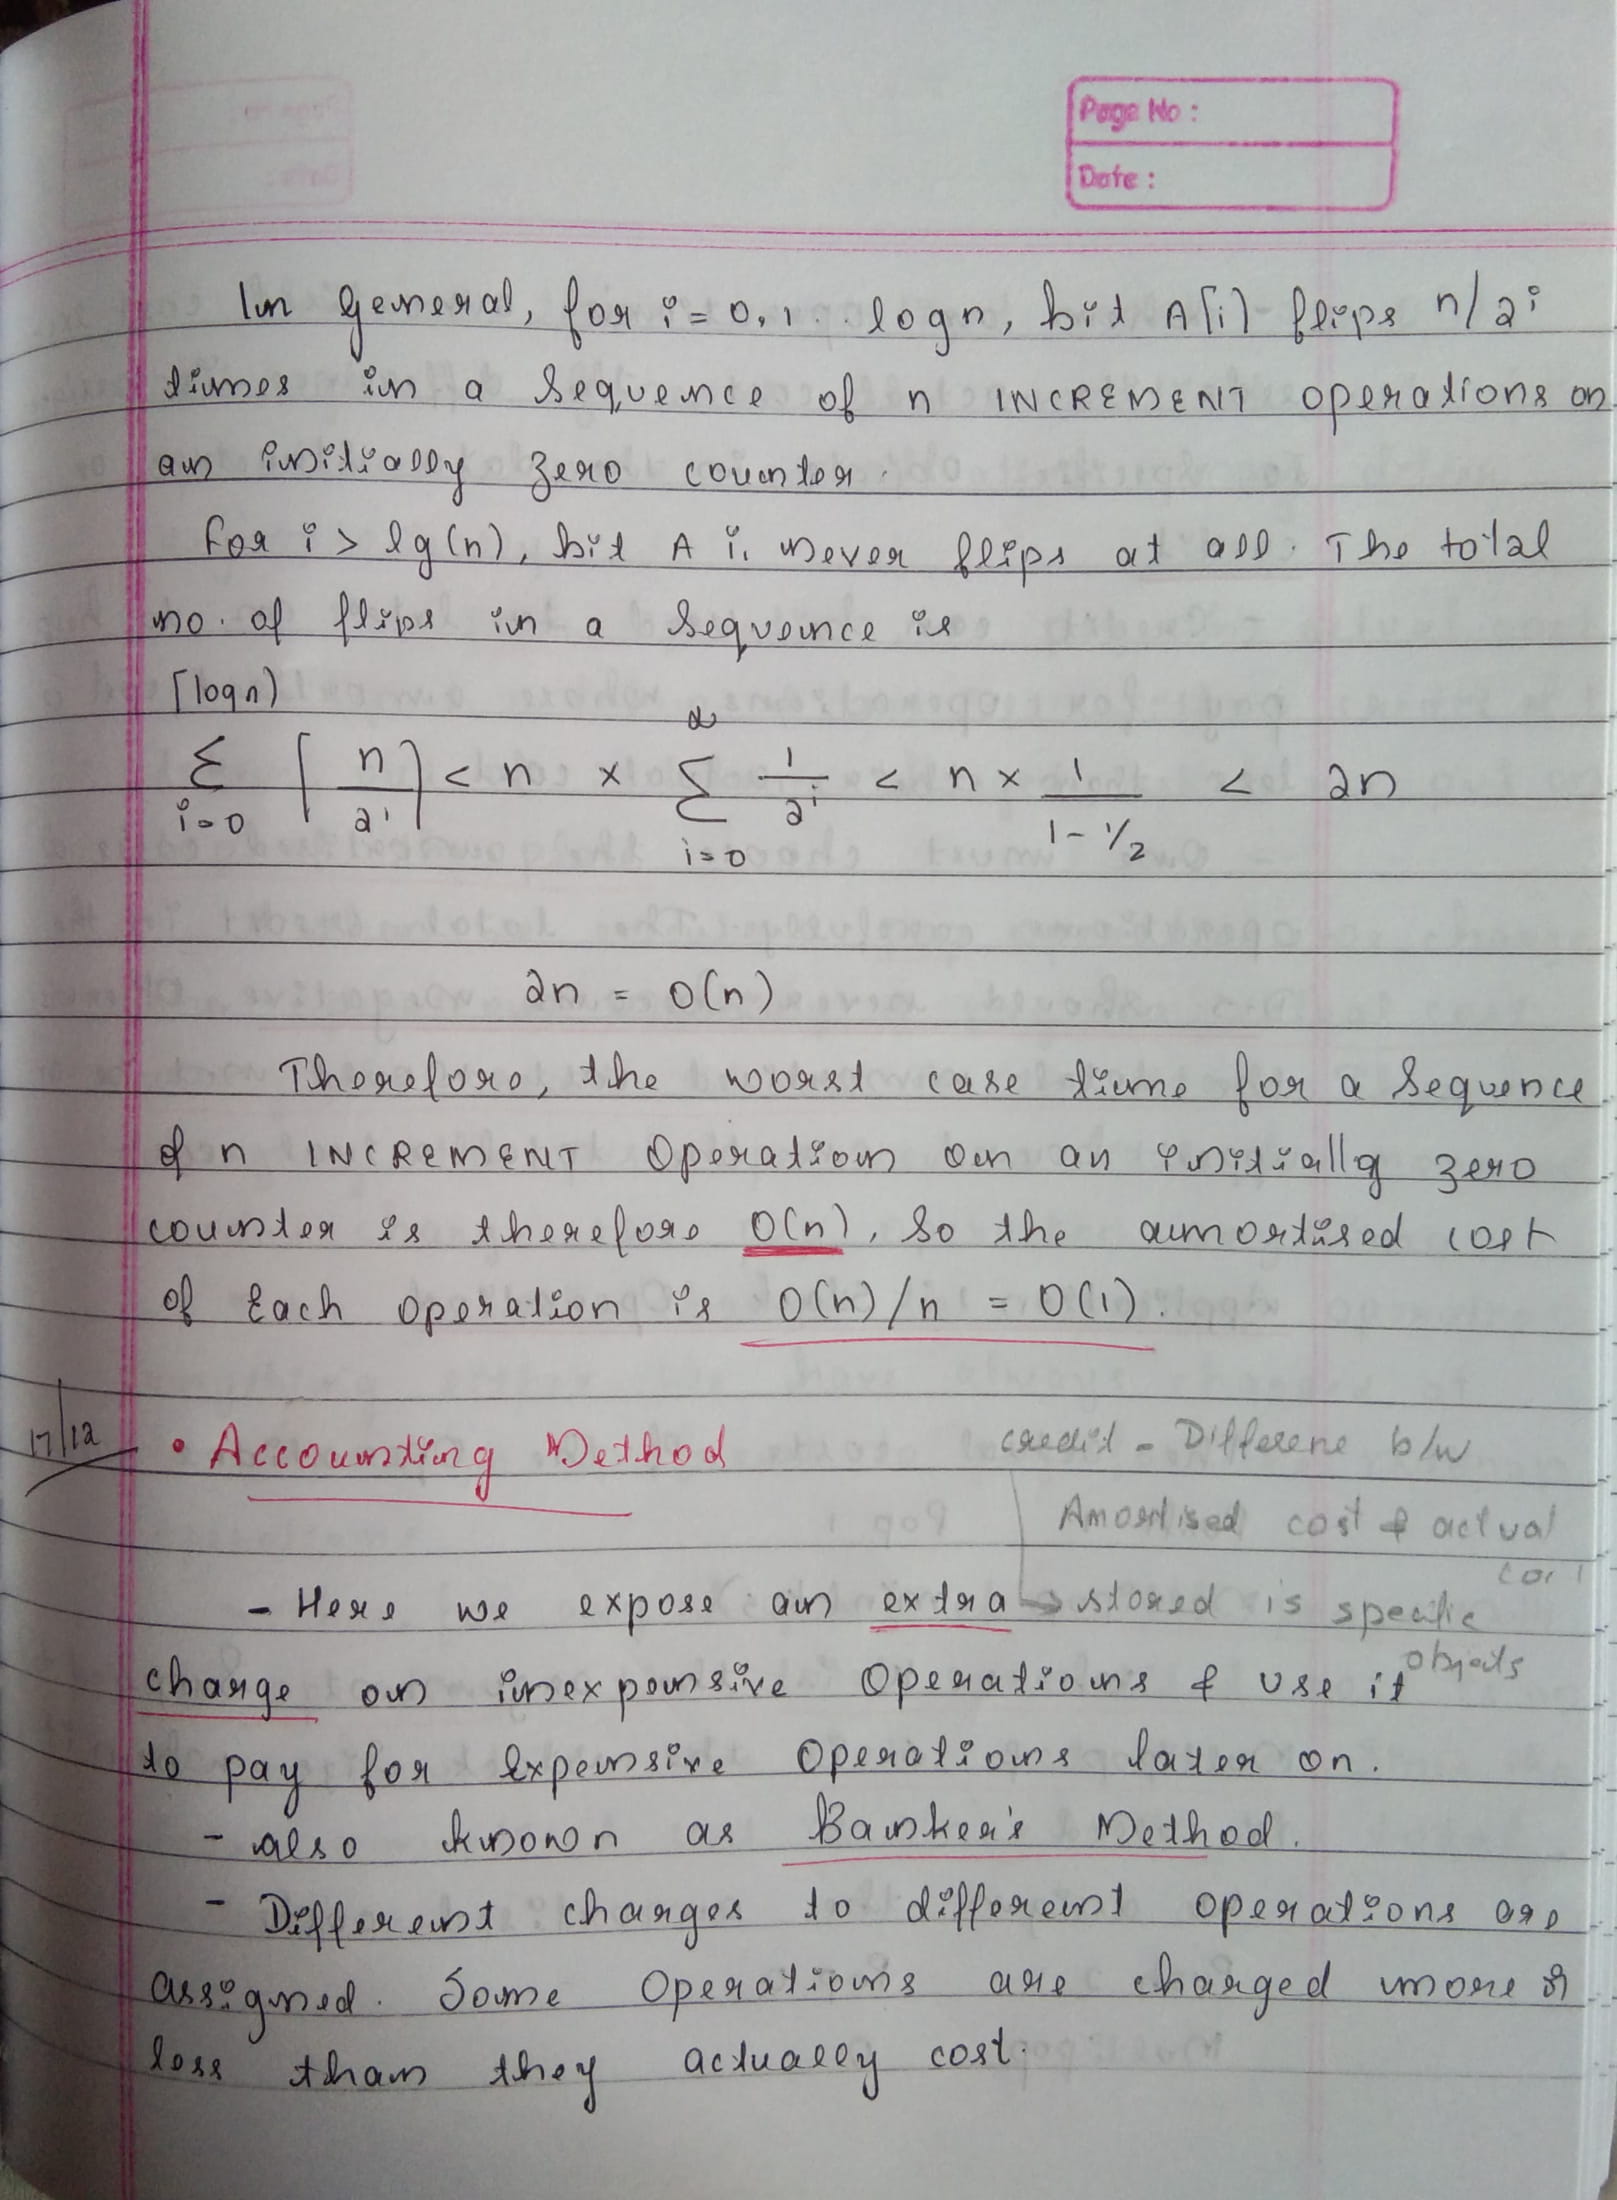 Page No :
Date :
In general, for i = 0, 1 . . logn, bit A[i] flips n/2i
times in a sequence of n INCREMENT operations on
an initially zero counter.
For i > lg(n), bit A i, never flips at all. The total
no. of flips in a sequence is
⌈logn)
Σ i=0 ⌈n/2i⌉ < n × ∞ Σ i=0 1/2i < n × 1/1-1/2 < 2n
2n = O(n)
Therefore, the worst case time for a sequence
of n INCREMENT operation on an initially zero
counter is therefore O(n), so the amortised cost
of Each operation is O(n)/n = O(1).
17/12
• Accounting Method
credit - Differene b/w
Amortised cost & actual
cost
- Here we expose an extra → stored is specific
objects
charge on inexpensive operations & use it
to pay for expensive operations later on.
- also known as Banker's Method.
- Different charges to different operations are
assigned. Some operations are charged more or
less than they actually cost.